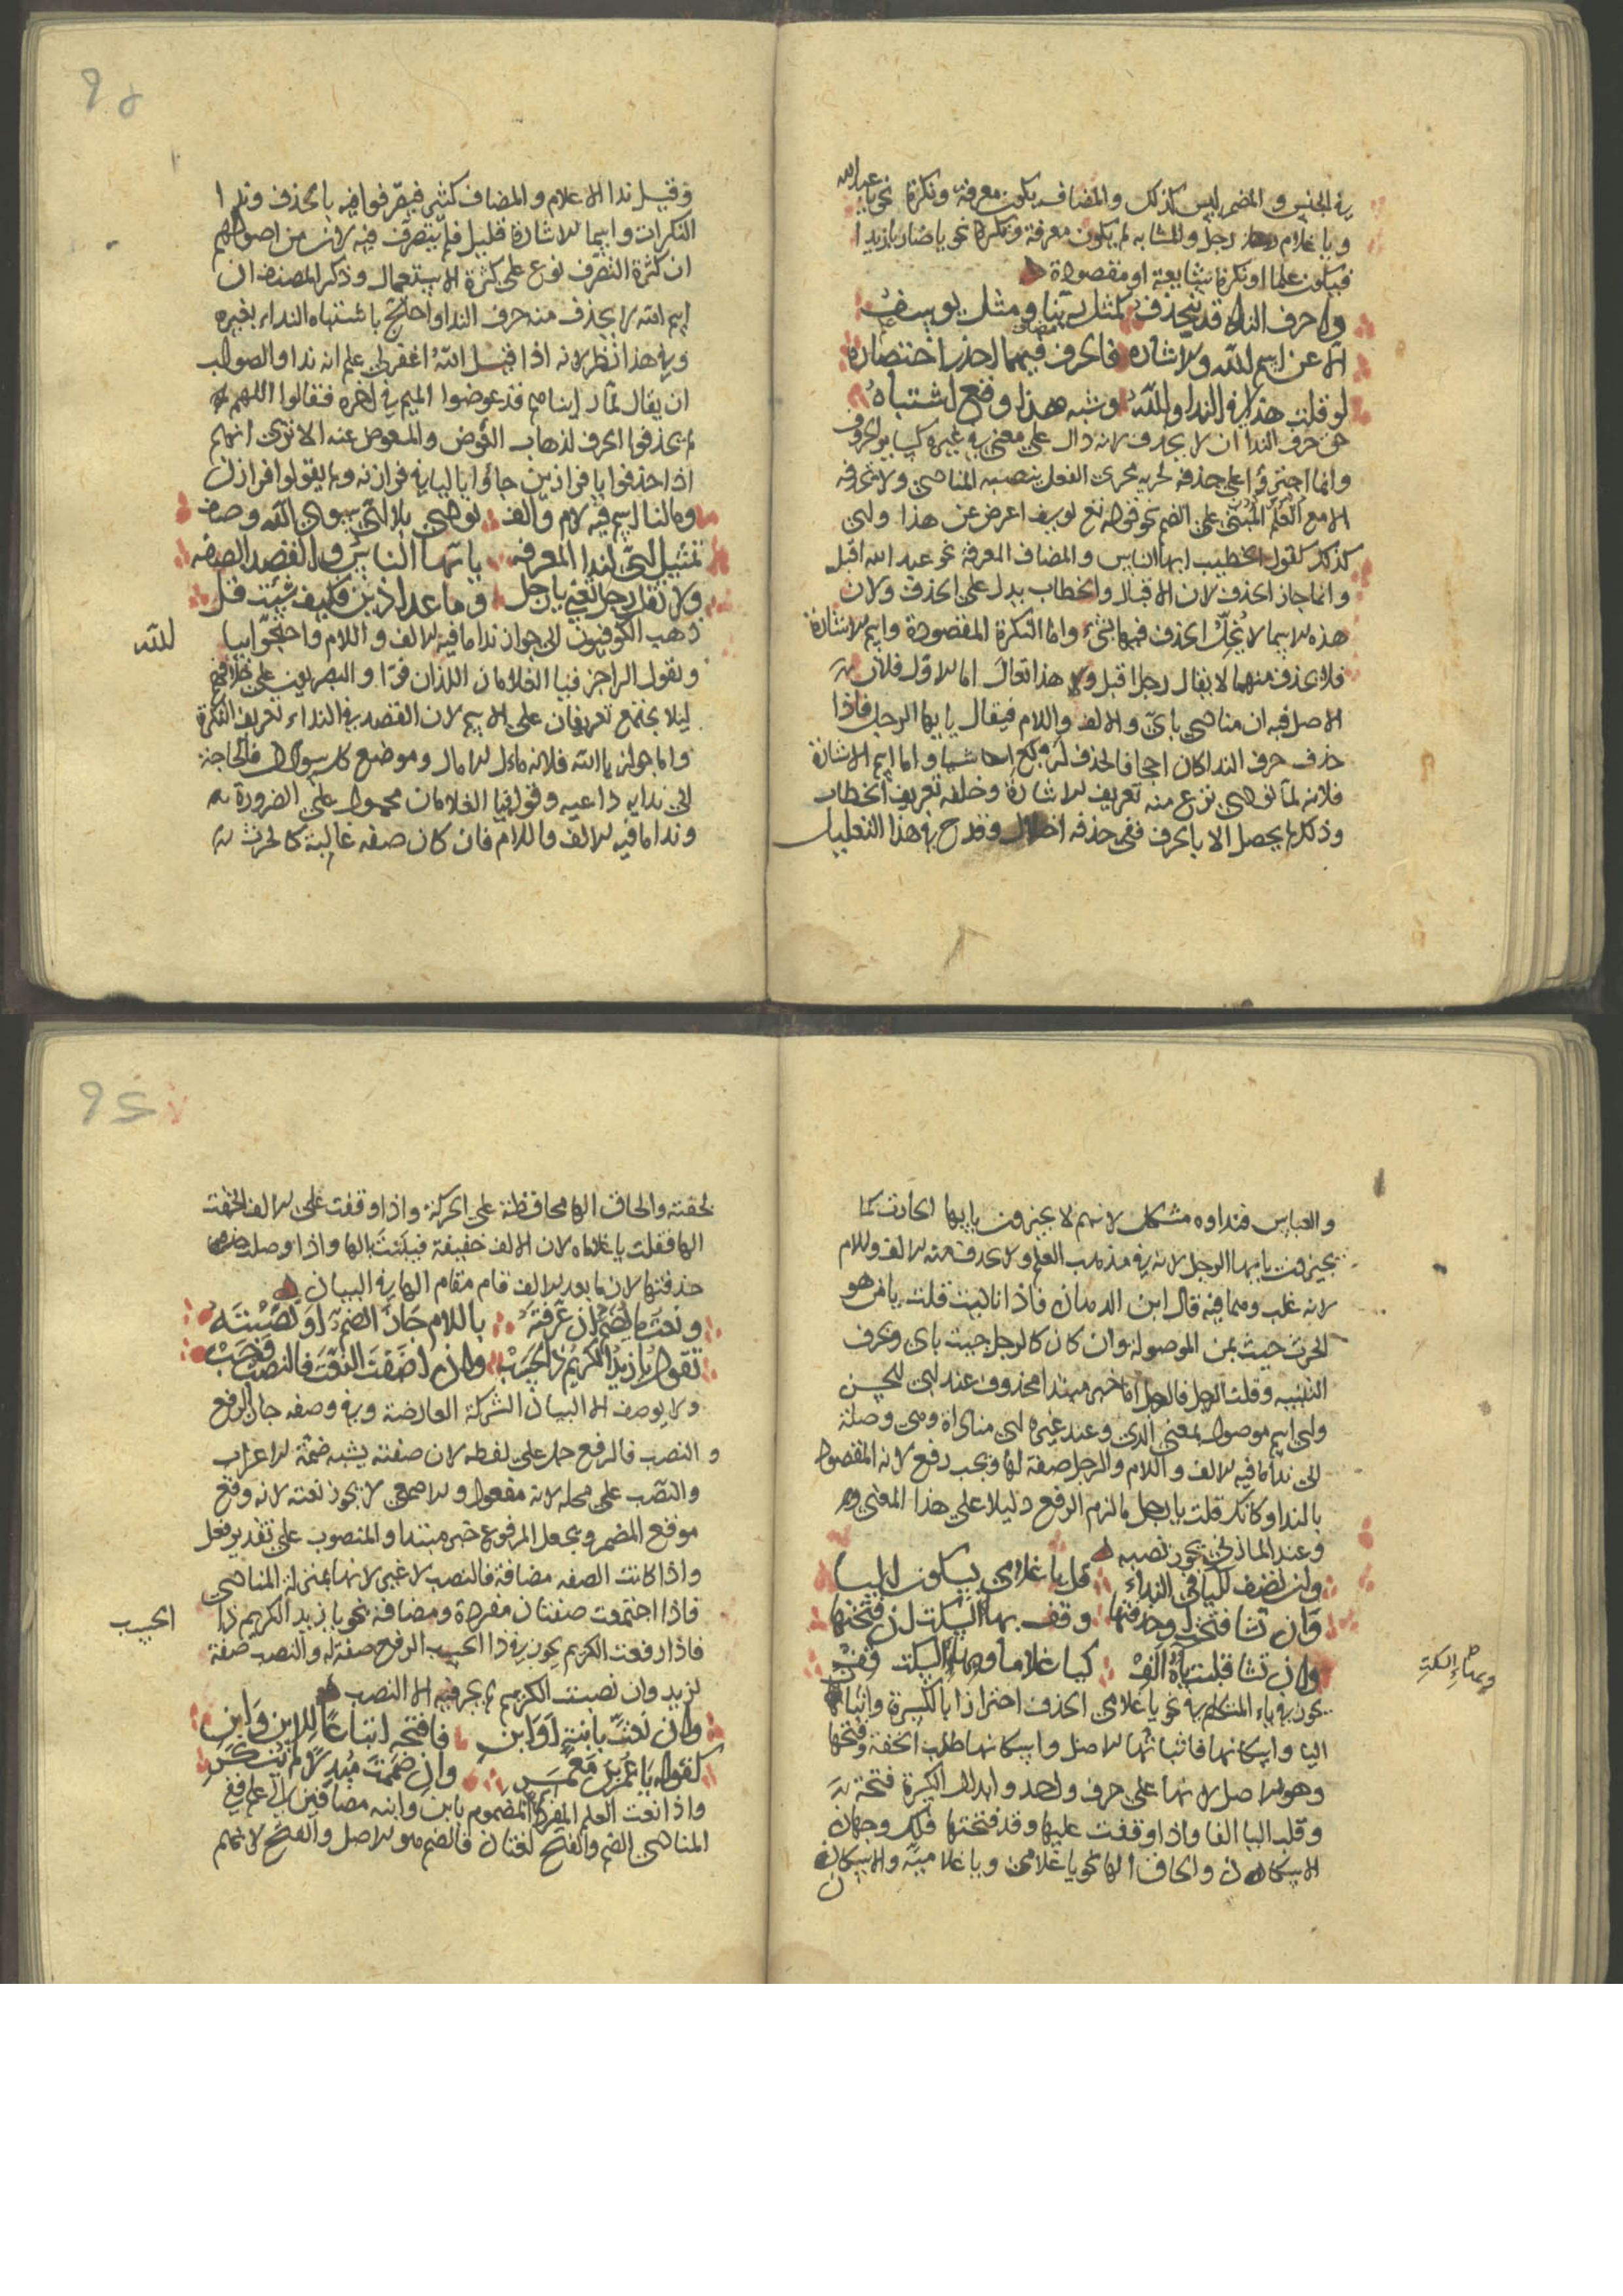 في الجنس والمضمر ليس كذلك والمضاف يكون معرفة ونكرة نحو يا عبدالله
ويا غلام رجل والمشابه له يكون معرفة ونكرة نحو يا ضاربا زيدا
فيكون علما او نكرة شايعة او مقصودة
وحرف النداء قد ينحذف كمثل ربنا ومثل يوسف
الا عن اسم الله والاشاره فالحرف فيهما احذر اختصاره
لو قلت هذا في الندا والله وشبه هذا وقع اشتباه
حق حرف الندا ان لا يحذف لانه دال على معنى في غيره كساير الحروف
وانما اجترؤا على حذفه لجريه مجرى الفعل بنصبه المنادى ولا تحذفه
الا مع العلم المبني على الضم نحو قوله تع يوسف اعرض عن هذا واي
كذلك كقول الخطيب ايها الناس والمضاف المعرفة نحو عبد الله اقبل
وانما جاز الحذف لان الاقبال والخطاب يدل على الحذف ولان
هذه الاسما لا يخل الحذف فيها بشيء واما النكرة المقصودة واسم الاشارة
فلا يحذف منهما لا يقال رجل اقبل ولا هذا تعال اما الاول فلان
الاصل فيه ان ينادى باي والالف واللام فيقال يا ايها الرجل فاذا
حذف حرف الندا كان اجحافا لحذف اشيا واما اسم الاشارة
فلانه لما نودي نزع منه تعريف الاشارة وخلفه تعريف الخطاب
وذلك لم يحصل الا بالحرف ففي حذفه اخلال وقدح في هذا التعليل
وقيل ندا الاعلام والمضاف كثير فتصرفوا فيه بالحذف وندا
النكرات واسما الاشارة قليل فلم يتصرف فيه لان من اصولهم
ان كثرة التصرف نوع على كثرة الاستعمال وذكر المصنف ان
اسم الله لا يحذف منه حرف الندا واحتج باشتباه النداء بغيره
وفي هذا نظر لانه اذا قيل الله اغفر لي علم انه ندا والصواب
ان يقال قد عوضوا الميم في اخره فقالوا اللهم
لم يحذفوا الحرف لذهاب العوض والمعوض عنه الا ترى انهم
اذا حذفوا يا فرازين جاؤا بالتا في فرازنه ولم يقولوا فرازن
وما لنا اسم فيه لام والف نودي بلا اي سوى الله وصف
تمثيل اي لندا المعرفه يا ايها الناس والقصد الصفه
ولا تقل رجل تعني يا رجل وما عدا ذين فكيف شئت قل
ذهب الكوفيون الى جواز ندا ما فيه الالف واللام واحتجوا بيا
لله
وبقول الراجز فيا الغلامان اللذان فرّا والبصريون على خلافهم
ليلا يجتمع تعريفان على الاسم لان القصد في النداء تعريف النكرة
واما جواز يا الله فلانه ماءل الامال وموضع كل سوال فالحاجة
الى ندايه داعيه وقوله فيا الغلامان محمول على الضرورة
وندا ما فيه الالف واللام فان كان صفه غالبة كالحرث
والعباس فنداوه مشكل لانهم لا يجيزون يا ايها الحارث كما
يجيزون يا ايها الرجل لانه في مذهب العلم ولا تحذف منه الالف واللام
لانه غلب وهما فيه قال ابن الدهان فاذا ناديت قلت يا من هو
الحرث جيت بمن الموصولة وان كان كالرجل جيت باي وحرف
التنبيه وقلت يا ايها الرجل فالرجل اما خبر مبتدا محذوف عند ابي الحسن
واي اسم موصول بمعنى الذي وعند غيره اي مناداة وهي وصلة
الى ندا ما فيه الالف واللام والرجل صفة لها ويجب رفع لانه المقصود
بالندا وكانك قلت يا رجل فالتزم الرفع دليلا على هذا المعنى
وعند المازني يجوز نصبه
وان تضف للياء في النداء قل يا غلامي بسكون الياء
وان تشا فتحت او حذفتها وقف بهاء السكت ان فتحتها
وان تشا قلبت ياه الف كيا غلاما وبهاء السكت قف
وبهاء السكت
يجوز في ياء المتكلم في نحو يا غلامي الحذف اجتزاء بالكسرة واثبات
اليا واسكانها فاثباتها الاصل واسكانها طلب الخفة وفتحها
وهو الاصل لانها على حرف واحد وابدال الكسرة فتحة
وقلب اليا الفا واذا وقفت عليها وقد فتحتها فلك وجهان
الاسكان والحاق الها نحو يا غلامي ويا غلاميه والاسكان
لخفته والحاق الها محافظة على الحركة واذا وقفت على الالف الحقت
الها فقلت يا غلاماه لان الالف خفيفة فبينت بالها واذا وصلت
حذفتها لان ما بعد الالف قام مقام الها في البيان
ونعت ما يضم ان عرفته باللام جاز الضم او نصبته
تقول يا زيد الكريم ذا الحسب وان اضفت النعت فالنصب وجب
ولا يوصف الا لبيان الشركة العارضة وفي وصفه جاز الرفع
والنصب فالرفع حملا على لفظه لان ضمته يشبه ضمة الاعراب
والنصب على محله لانه مفعول والاصمعي لا يجوز نعته لانه وقع
موقع المضمر ويجعل المرفوع خبر مبتدا والمنصوب على تقدير فعل
واذا كانت الصفه مضافة فالنصب لا غير لانها بمنزلة المنادى
فاذا اجتمعت صفتان مفردة ومضافة نحو يا زيد الكريم ذا
الحسب
فاذا رفعت الكريم يجوز في ذا الحسب الرفع صفة له والنصب صفة
لزيد وان نصبت الكريم لم يجز فيه الا النصب
وان نعت بابنة او ابن فافتحه اتباعا للاين وابن
كقوله يا عمر بن معمر وان ضممت مبدلا لم ينكر
واذا نعت العلم المفرد المضموم بابن وابنه مضافين الى علم ففي
المنادى الضم والفتح لغتان فالضم هو الاصل والفتح لانهم